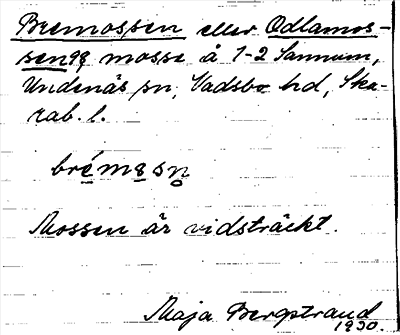 Bremossen eller Odlamos-
sen, mosse å 1-2 Sannum,
Undenäs sn, Vadsbo hd, Ska-
rab. l.
brémåsn̥
Mossen är vidsträckt.
Maja Bergstrand
1930.